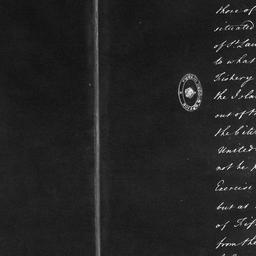 those of
situated
of St. Law
to what
Fishery
the Isla
out of th
the
United
not be
Exercise
but as
of Fif
from the